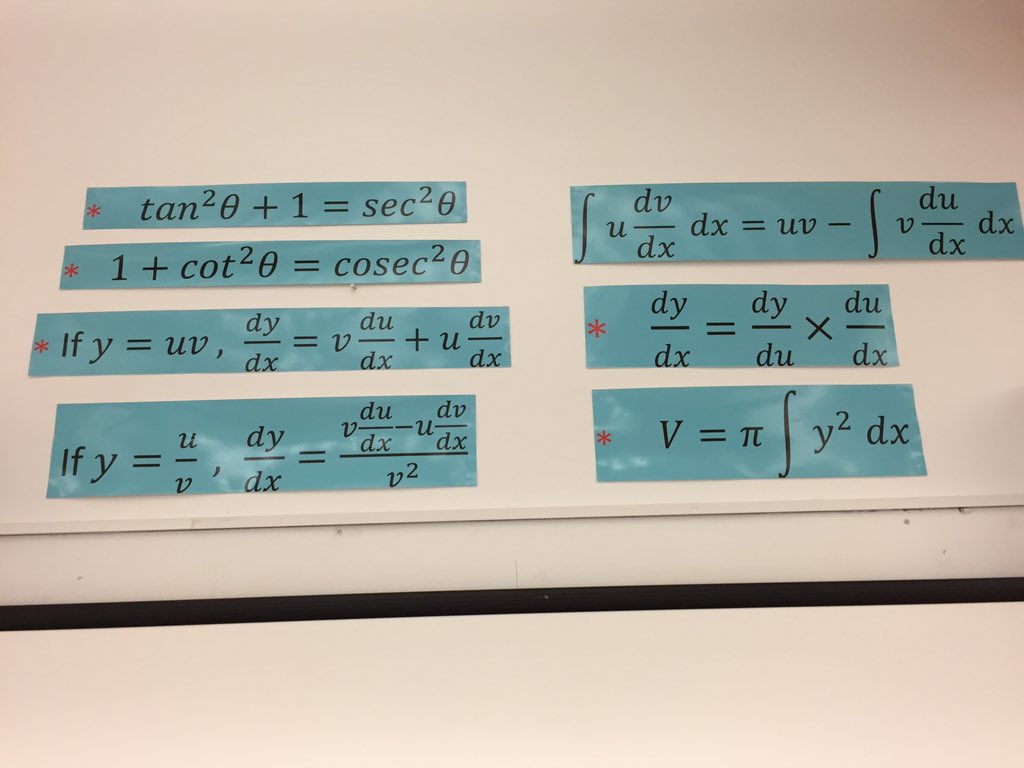 * tan²θ + 1 = sec²θ
* 1 + cot²θ = cosec²θ
* If y = uv, dy/dx = v du/dx + u dv/dx
If y = u/v, dy/dx = (v du/dx − u dv/dx)/v²
∫ u dv/dx dx = uv − ∫ v du/dx dx
* dy/dx = dy/du × du/dx
* V = π ∫ y² dx